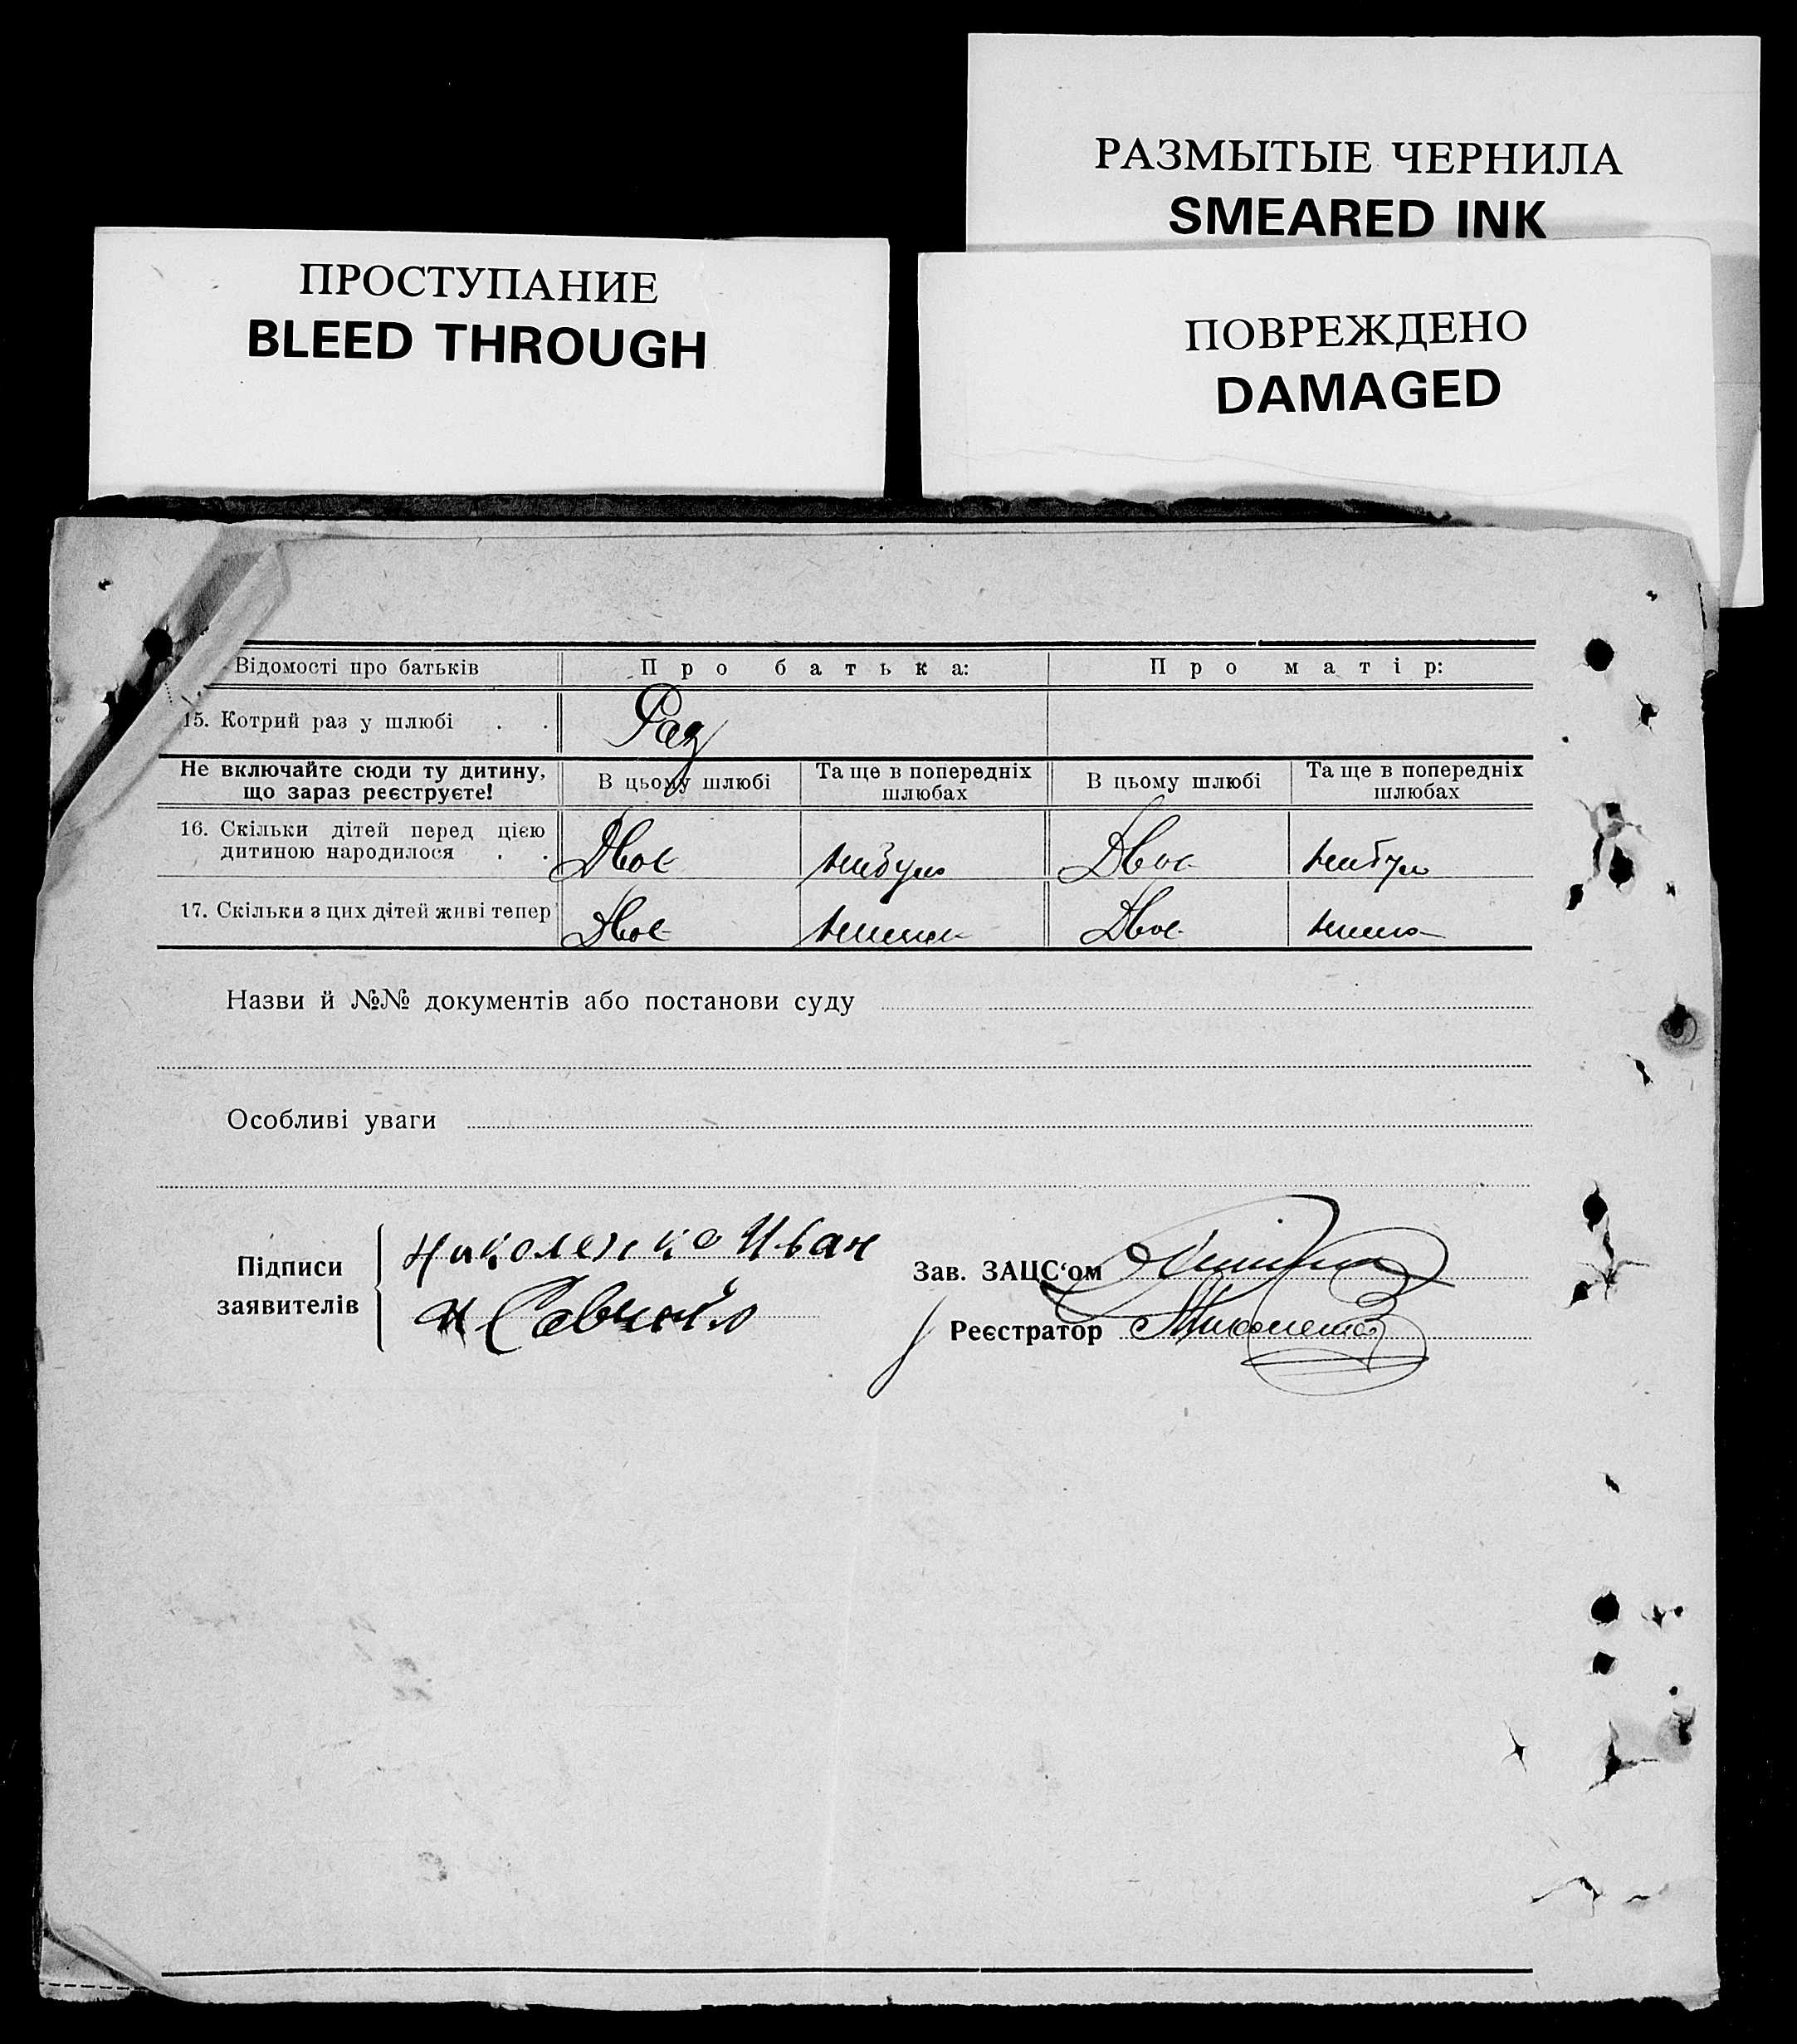 РАЗМЫТЫЕ ЧЕРНИЛА
SMEARED INK
ПРОСТУПАНИЕ
BLEED THROUGH
ПОВРЕЖДЕНО
DAMAGED
Відомості про батьків Про батька: Про матір:
15. Котрий раз у шлюбі . . Раз
Не включайте сюди ту дитину, що зараз реєструєте! В цьому шлюбі Та ще в попередніх шлюбах В цьому шлюбі Та ще в попередніх шлюбах
16. Скільки дітей перед цією
дитиною народилося . . Двоє Двоє
17. Скільки з цих дітей живі тепер Двоє Двоє
Назви й №№ документів або постанови суду
Особливі уваги
Підписи заявителів
Николенко Иван
Зав. ЗАЦС‘ом
Реєстратор